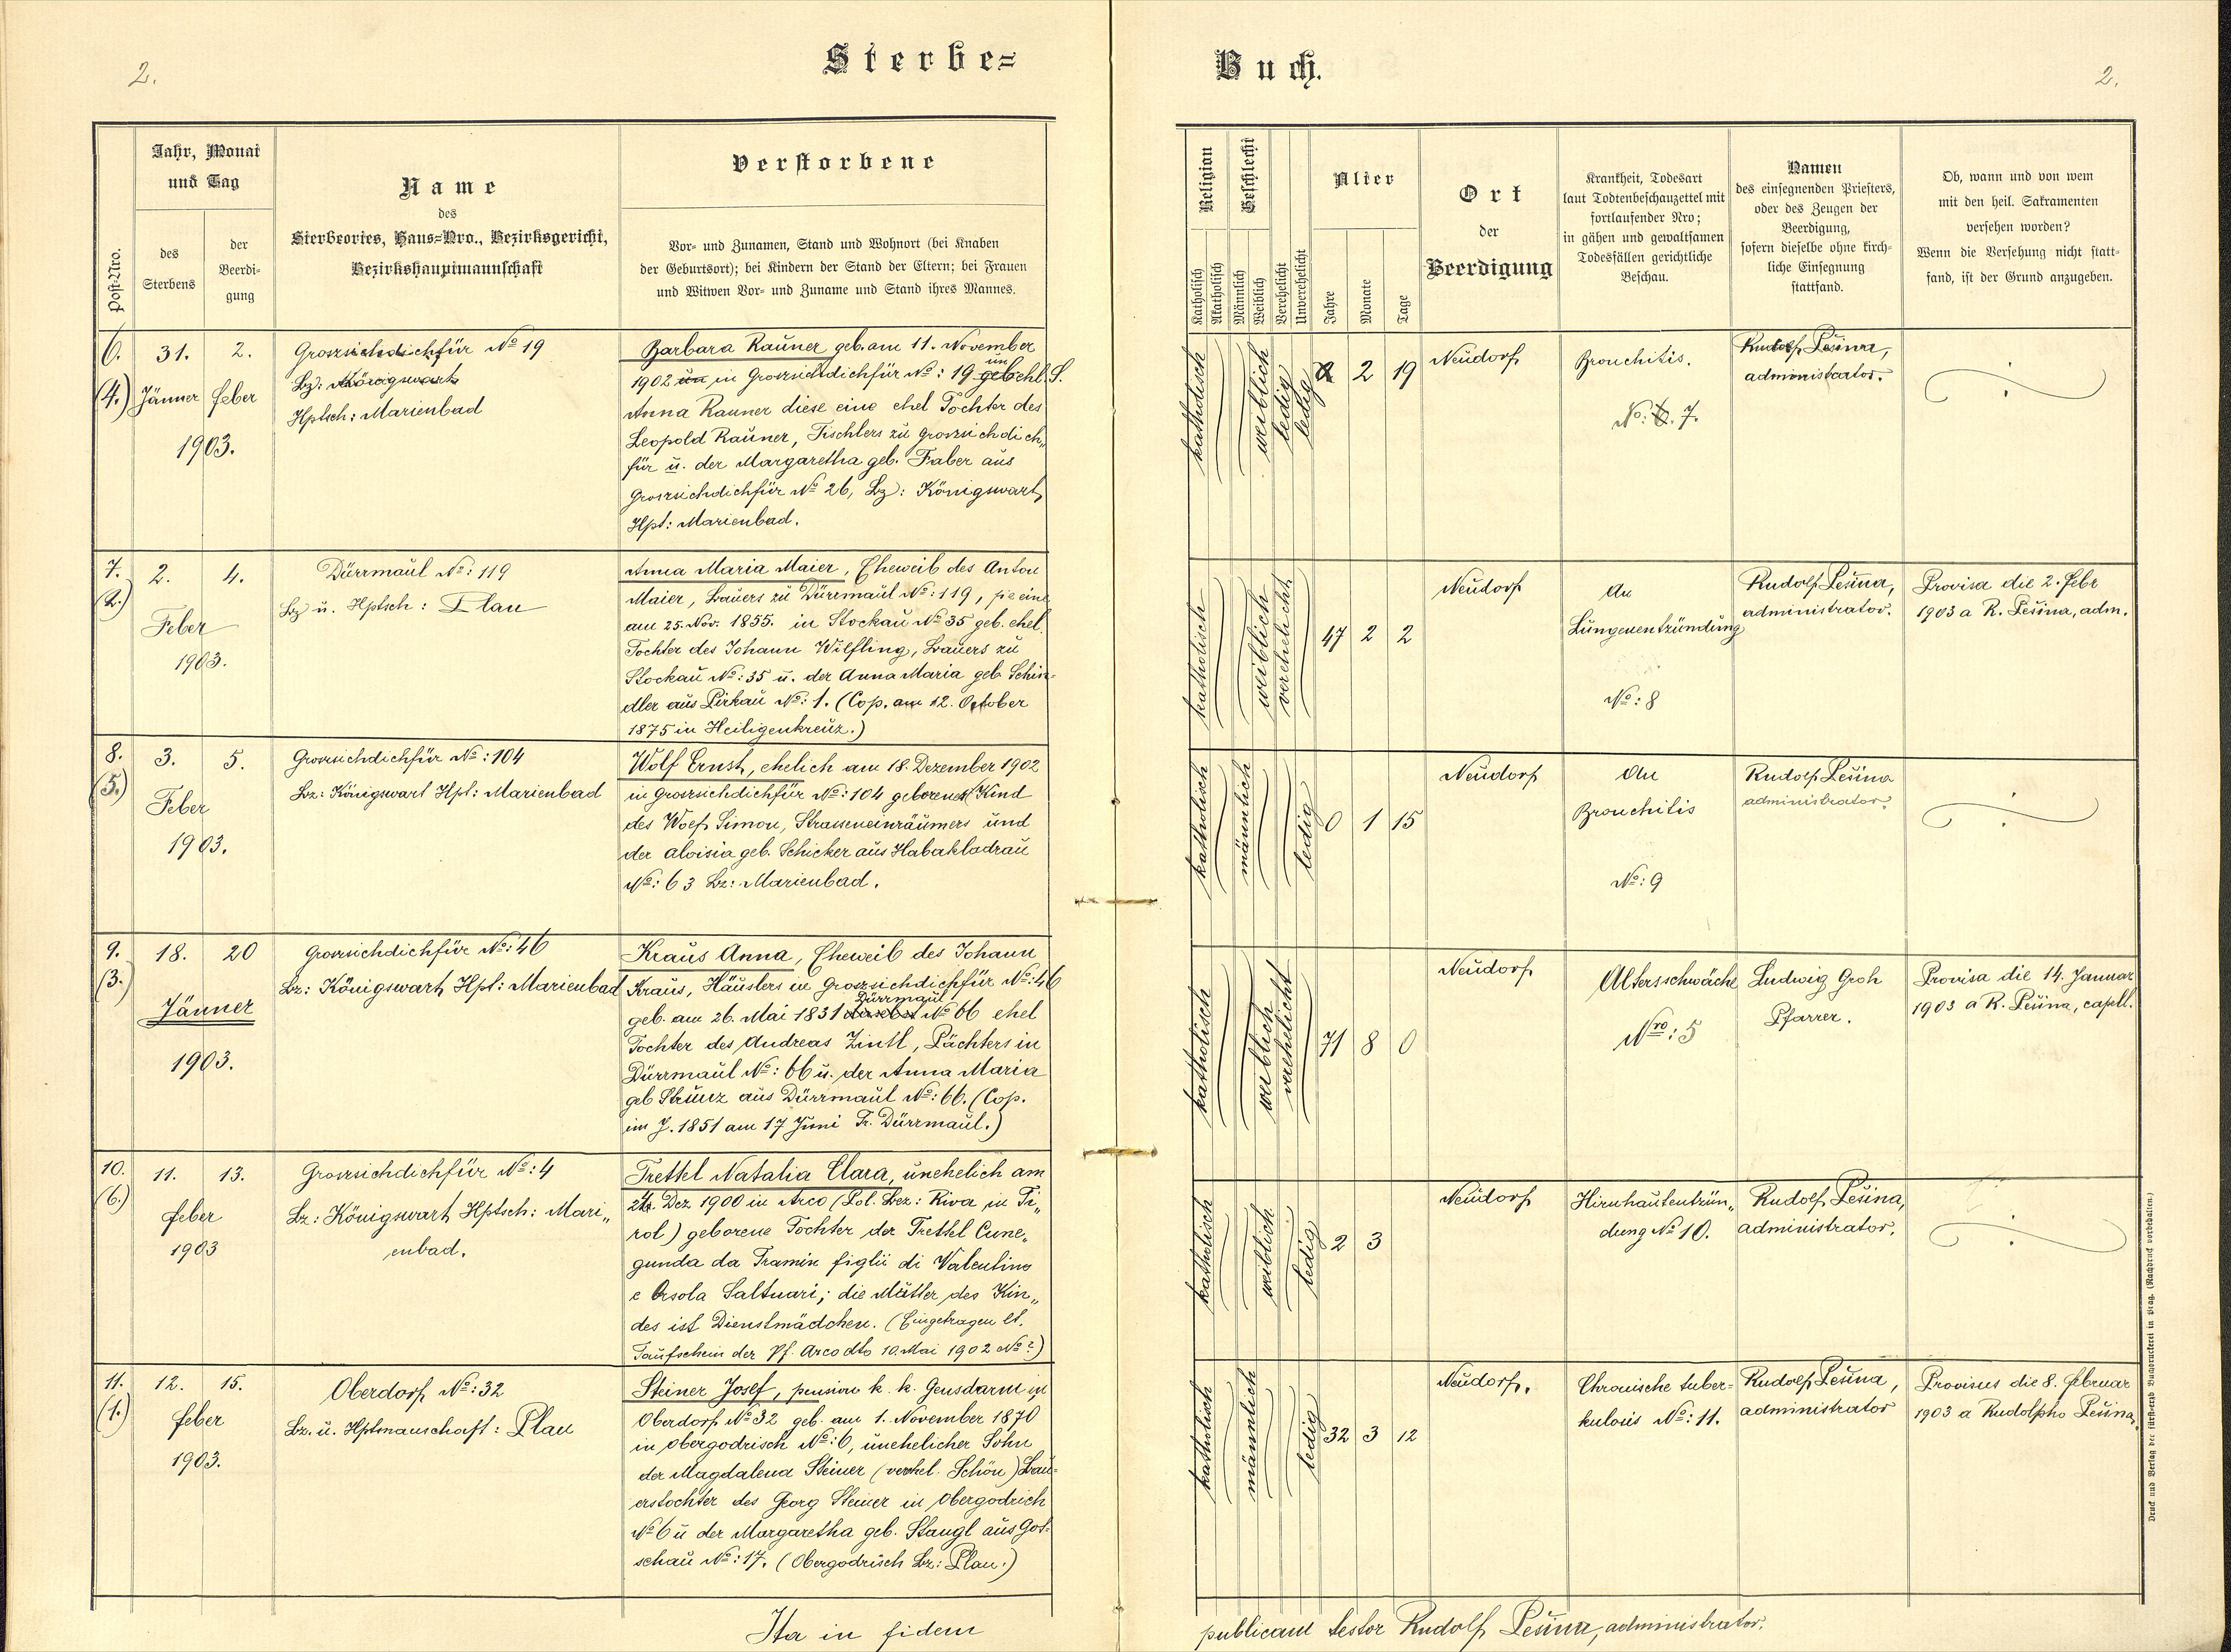 2.
Sterbe=
Buch.
2.
Post-Nro.
Jahr, Monat
und Tag
des
Sterbens
der
Beerdi-
gung
Name
des
Sterbeortes, Haus=Nro., Bezirksgericht,
Bezirkshauptmannschaft
Verstorbene
Vor- und Zunamen, Stand und Wohnort (bei Knaben
der Geburtsort); bei Kindern der Stand der Eltern; bei Frauen
und Witwen Vor- und Zuname und Stand ihres Mannes.
Religion
Katholisch
Akatholisch
Geschlecht
Männlich
Weiblich
Verehelicht
Unverehelicht
Alter
Jahre
Monate
Tage
Ort
der
Beerdigung
Krankheit, Todesart
laut Todtenbeschauzettel mit
fortlaufender Nro;
in gähen und gewaltsamen
Todesfällen gerichtliche
Beschau.
Namen
des einsegnenden Priesters,
oder des Zeugen der
Beerdigung,
sofern dieselbe ohne kirch-
liche Einsegnung
stattfand.
Ob, wann und von wem
mit den heil. Sakramenten
versehen worden?
Wenn die Versehung nicht statt-
fand, ist der Grund anzugeben.
6.
(4.)
31. 2.
Jänner feber
1903.
Groszsichdichfür No 19
Bz: Königswart
Hptsch: Marienbad
Barbara Rauner geb. am 11. November
1902 in Groszsichdichfür No: 19 un ehl.
Anna Rauner diese eine ehel Tochter des
Leopold Rauner, Tischlers zu Groszsichdich„
für u. der Margaretha geb. Faber aus
Groszsichdichfür No 26, Bz: Königswart,
Hpt: Marienbad.
katholisch weiblich ledig ledig
2 19
Neudorf
Bronchitis.
No: 7.
Rudolf Pešina,
administrator.
7.
(2.)
2. 4.
Feber
1903.
Dürrmaul No: 119
Bz u. Hptsch: Plan
Anna Maria Maier, Eheweib des Anton
Maier, Bauers zu Dürrmaul No: 119, sie eine
am 25. Nov. 1855. in Stockau No 35 geb. ehel.
Tochter des Johann Wilfling, Bauers zu
Stockau No: 35 u. der Anna Maria geb. Schin=
dler aus Pirkau No: 1. (Cop. am 12. October
1875 in Heiligenkreuz.)
katholisch weiblich verehelicht.
47 2 2
Neudorf
An
Lungenentzündung
No: 8
Rudolf Pešina,
administrator.
Provisa die 2. Febr
1903 a R. Pešina, adm.
8.
(5.)
3. 5.
Feber
1903.
Groszsichdichfür No: 104
Bz: Königswart Hpt: Marienbad
Wolf Ernst, ehelich am 18. Dezember 1902
in Groszsichdichfür No: 104 geborenes Kind
des Wolf Simon, Strasseneinräumers und
der Aloisia geb. Schicker aus Habakladrau
No: 63 Bz: Marienbad.
katholisch männlich ledig
0 1 15
Neudorf
An
Bronchitis
No: 9
Rudolf Pešina
administrator.
9.
(3.)
18. 20
Jänner
1903.
Groszsichdichfür No: 46
Bz: Königswart, Hpt: Marienbad
Kraus Anna, Eheweib des Johann
Kraus, Häuslers in Groszsichdichfür No: 46
geb. am 26. Mai 1831 Dürrmaul No 66 ehel
Tochter des Andreas Zintl, Pächters in
Dürrmaul No: 66 u. der Anna Maria
geb Strunz aus Dürrmaul No: 66. (Cop.
im J. 1851 am 17 Juni Tr. Dürrmaul.)
katholisch weiblich verehelicht
71 8 0
Neudorf
Altersschwäche
Nro: 5
Ludwig Groh
Pfarrer.
Provisa die 14. Januar
1903 a R. Pešina, capell.
10.
(6.)
11. 13.
feber
1903
Groszsichdichfür No: 4
Bz: Königswart, Hptsch: Mari„
enbad.
Trettel Natalia Clara, unehelich am
24. Dez 1900 in Arco (Pol. Bez: Riva in Ti„
rol) geborene Tochter der Trettel Cune„
gunda da Tramin figlii di Valentino
e Orsola Saltuari; die Mutter des Kin„
des ist Dienstmädchen. (Eingetragen lt.
Taufschein der Pf. Arco dto 10. Mai 1902 No?)
katholisch weiblich ledig
2 3
Neudorf
Hirnhautentzün„
dung No 10.
Rudolf Pešina,
administrator.
11.
(1.)
12. 15.
feber
1903.
Oberdorf No: 32
Bz. u. Hptmanschaft: Plan
Steiner Josef, pension k. k. Gensdarm in
Oberdorf No 32 geb. am 1. November 1870
in Obergodrisch No: 6, unehelicher Sohn
der Magdalena Steiner (verhel. Schön) Bau=
erstochter des Georg Steiner in Obergodrich
No 6 u der Margaretha geb. Stangl aus Got=
schau No: 17. (Obergodrisch Bz: Plan.)
katholisch männlich ledig
32 3 12
Neudorf.
Chronische tuber=
kulosis No: 11.
Rudolf Pešina,
administrator
Provisus die 8. Februar
1903 a Rudolpho Pešina,
Ita in fidem
publicam testor Rudolf Pešina, administrator.
Druck und Verlag der fürsterzb Buchdruckerei in Prag. (Nachdruck vorbehalten.)